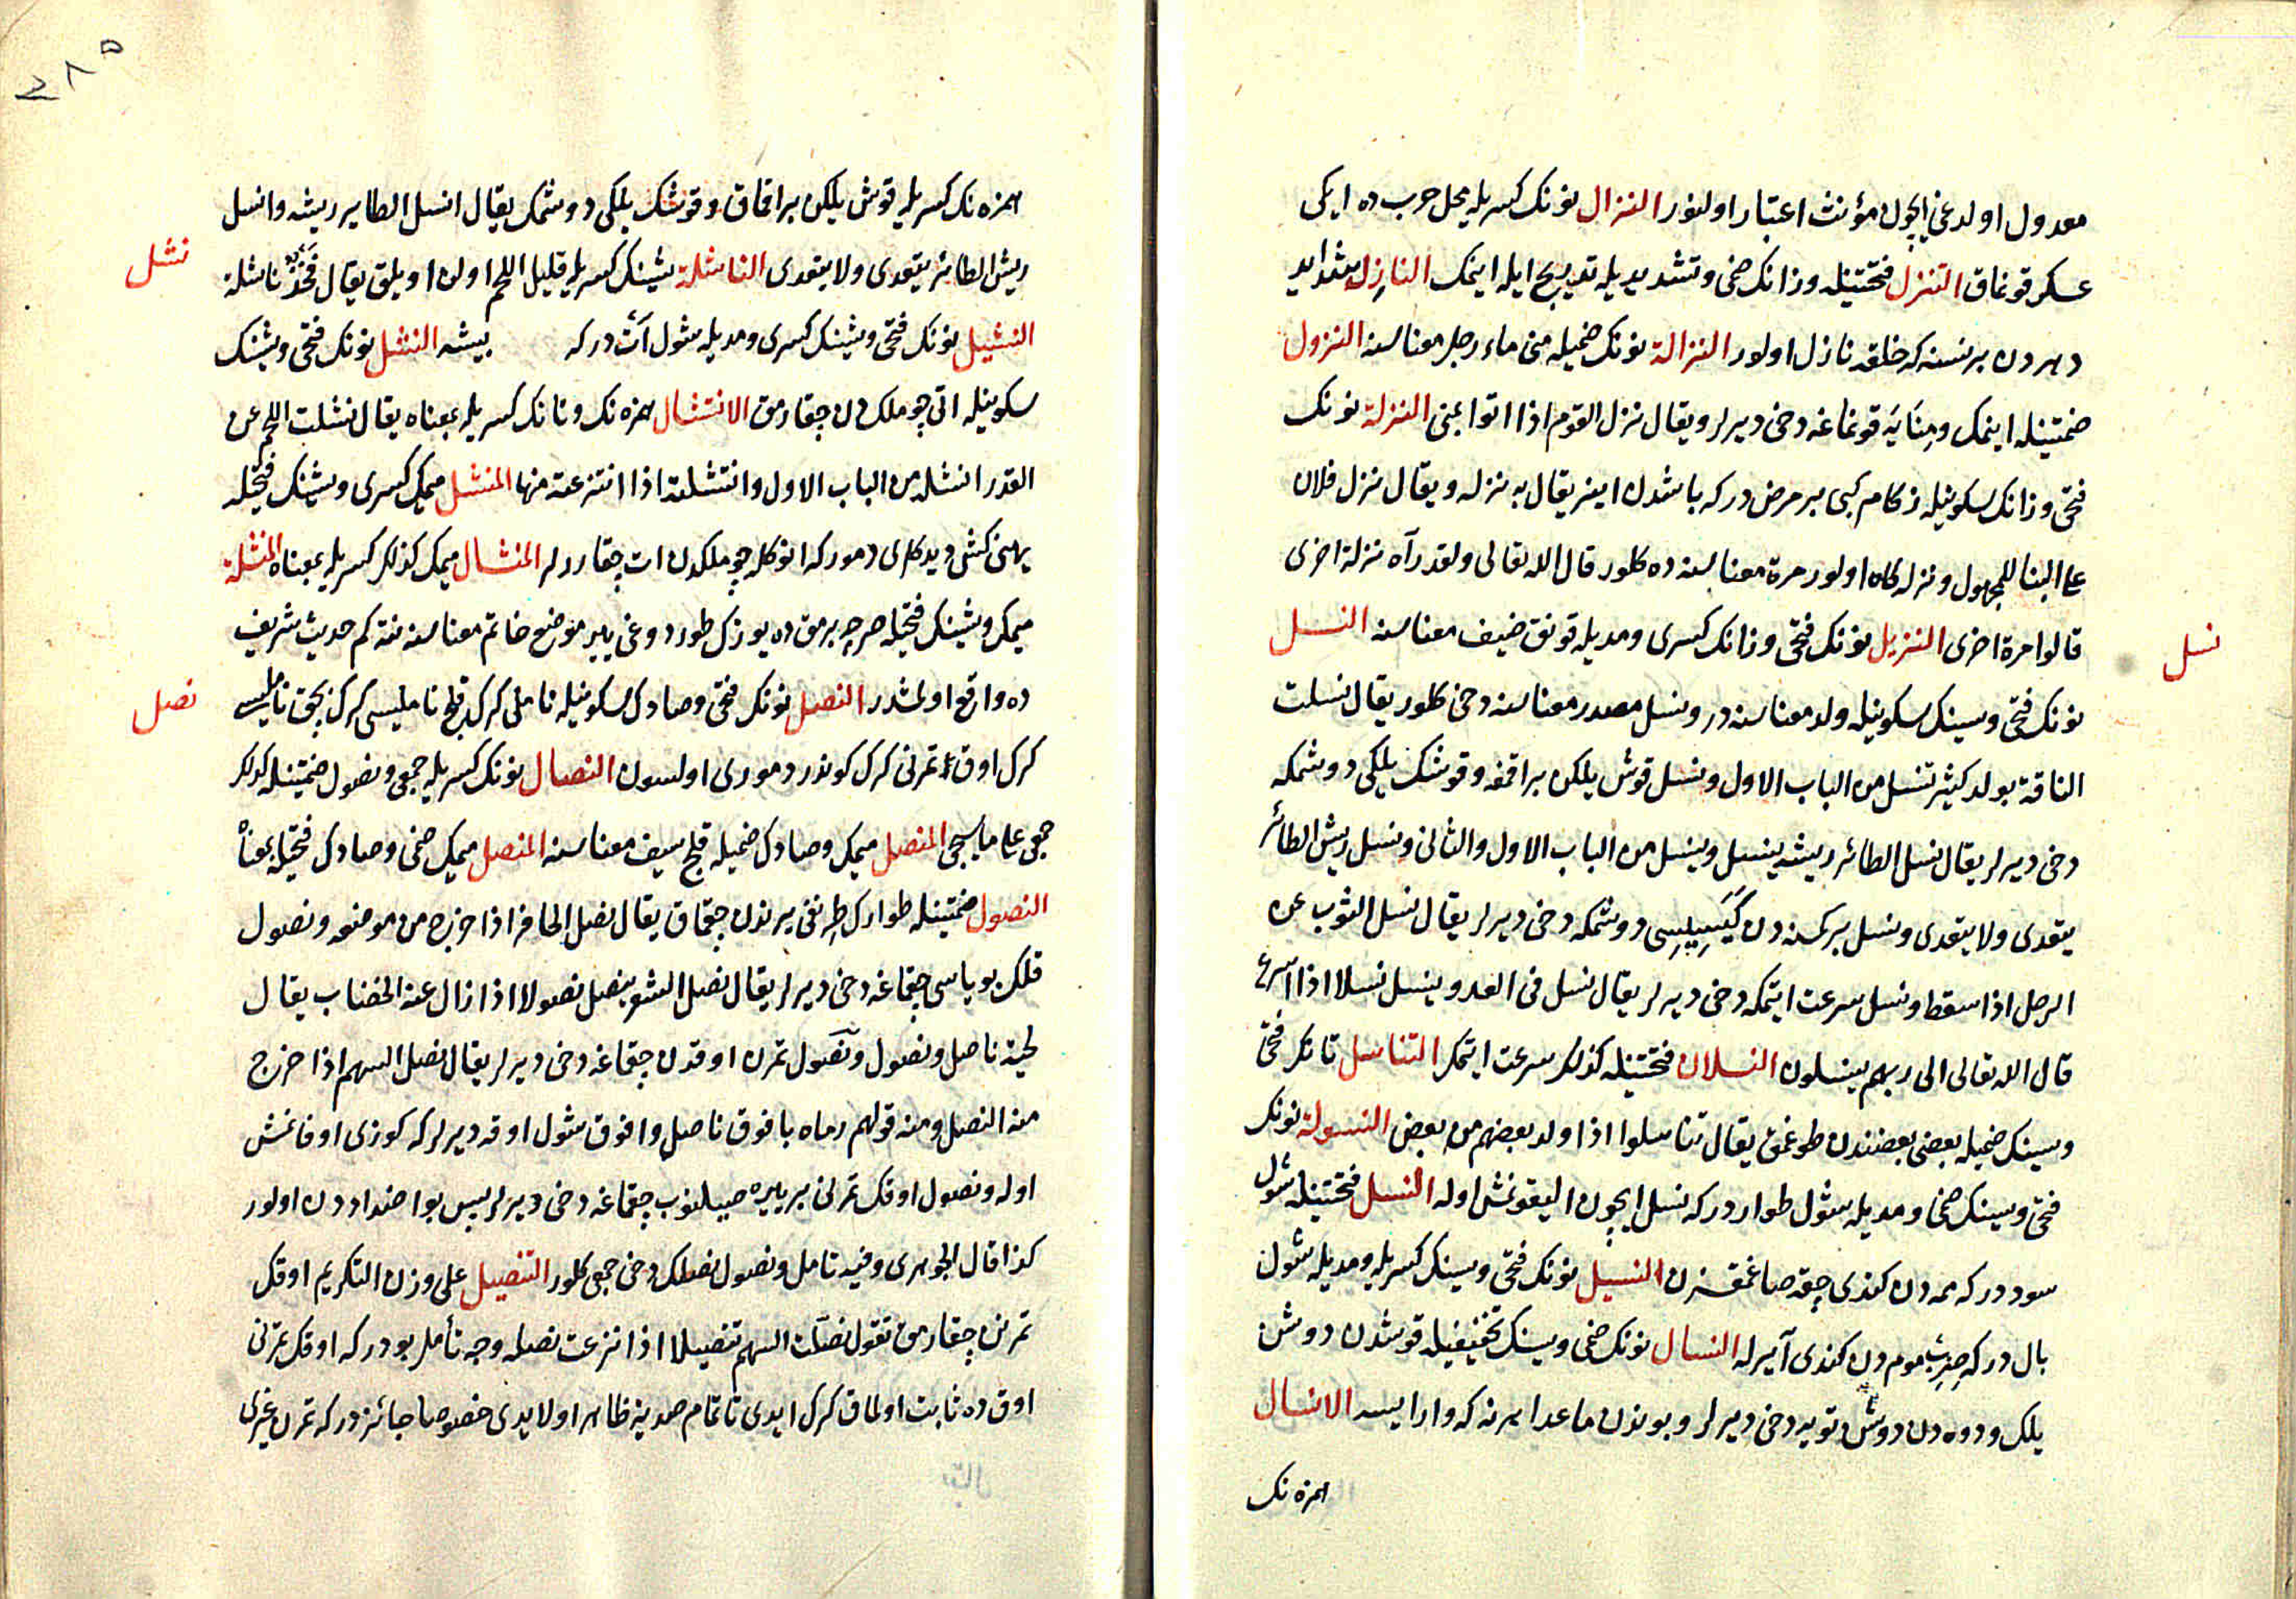 معدول اولدغى ايچون مؤنث اعتبار اولنور النزال نونك كسريله محل حربده ايكى
عسكر قونماق التنزل فتحتينله وزانك ضمى وتشديديله تدريج ايله اينمك النازل شدايد
دهردن برنسنه كه خلقه نازل اولور النزالة نونك ضميله منى ماء رجل معناسنه النزول
ضمتينله اينمك ومنايه قونماغه دخى ديرلر ويقال نزل القوم اذا اتوا بمنى النزلة نونك
فتحى وزانك سكونيله زكام كبى بر مرض دركه باشدن اينر يقال به نزله ويقال نزل فلان
على البنا للمجهول ونزله كاه اولور مرة معناسنه ده كلور قال الله تعالى ولقد رآه نزلة اخرى
قالوا مرة اخرى النزيل نونك فتحى وزانك كسرى ومديله قونق ضيف معناسنه النسل
نسل
نونك فتحى وسينك سكونيله ولد معناسنه در ونسل مصدر معناسنه دخى كلور يقال نسلت
الناقة بولد كثير تنسل من الباب الاول ونسل قوش يلكن براقمغه وقوشك يلكى دوشمكه
دخى ديرلر يقال نسل الطائر ريشه ينسل وينسل من الباب الاول والثانى ونسل ريش الطائر
يتعدى ولا يتعدى ونسل بر كمسنه دن كيسيلسى دوشمكه دخى ديرلر يقال نسل الثوب عن
الرجل اذا سقط ونسل سرعت ايتمكه دخى ديرلر يقال نسل فى العدو ينسل نسلا اذا اسرع
قال الله تعالى الى ربهم ينسلون النسلان فتحتينله كذلك سرعت ايتمك التناسل تانك فتحى
وسينك ضميله بعضى بعضندن طوغمق يقال تناسلوا اذا ولد بعضهم من بعض النسولة نونك
فتحى وسينك ضمى ومديله شول طواردركه نسل ايچون اليقونمش اوله النسل فتحتينله شول
سوددركه ممه دن كندى چقه صاغمقسزن النسيل نونك فتحى وسينك كسريله ومديله شول
بال دركه جرب مومدن كندى آيرله النسال نونك ضمى وسينك تخفيفيله قوشدن دوشن
يلك ودوه دن دوشن تويه دخى ديرلر وبوندن ماعدا هر نه كه وارايسه الانسال
همزه نك
٢٨٥
همزه نك كسريله قوش يلكن براقماق وقوشك يلكى دوشمك يقال انسل الطاير ريشه وانسل
ريش الطائر يتعدى ولا يتعدى الناشلة شينك كسريله قليل اللحم اولن اويلق يقال فخذ ناشلة
نشل
النشيل نونك فتحى وشينك كسرى ومديله شول ات دركه بيشه النشل نونك فتحى وشينك
سكونيله اتى چوملكدن چقارمق الانتشال همزه نك وتانك كسريله بمعناه يقال نشلت اللحم عن
القدر انشله من الباب الاول وانتشلته اذا انتزعته منها المنشل ميمك كسرى وشينك فتحيله
دموركه انوكله چوملكدن ات چقارورلر المنشال ميمك كذلك كسريله بمعناه المنشلة
ميمك وشينك فتحيله صرچه برمقده يوزك طوردوغى يير موضع خاتم معناسنه نته كم حديث شريف
ده واقع اولمشدر النصل نونك فتحى وصادك سكونيله ناملى كرك قلج نامليسى كرك بچق نامليسى
نصل
كرك اوق تمرنى كرك كوندر دمورى اولسون النصال نونك كسريله جمعى ونصول ضمتينله كذلك
جمعى على ما يجى المنصل ميمك وصادك ضميله قلج سيف معناسنه المنصل ميمك ضمى وصادك فتحيله بمعناه
النصول ضمتينله طوارك طرنغى يرندن چقماق يقال نصل الحافر اذا خرج من موضعه ونصول
قلك بوياسى چقماغه دخى ديرلر يقال نصل الشعر ينصل نصولا اذا زال عنه الخضاب يقال
لحية ناصل ونصول ونصول تمرن اوقدن چقماغه دخى ديرلر يقال نصل السهم اذا خرج
منه النصل ومنه قولهم رماه بافوق ناصل وافوق شول اوقه ديرلركه كوزى اوفانمش
اوله ونصول اوقك تمرنى بر ييره صپلنوب چقماغه دخى ديرلر پس بو اضداددن اولور
كذا قال الجوهرى وفيه تامل ونصول نصلك دخى جمعى كلور التنصيل على وزن التكريم اوقك
تمرنن چقارمق تقول نصلت السهم تنصيلا اذا نزعت نصله وجه تأمل بودركه اوقك تمرنى
اوقده ثابت اولماق كرك ايدى تا تمام ضديه ظاهر اولايدى خصوصا جائزدركه تمرن غيرى